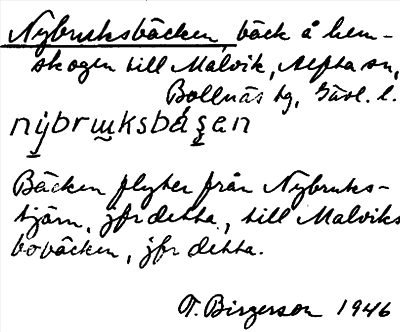 Nybruksbäcken, bäck å hem-
skogen till Malvik, Alfta sn,
Bollnäs tg, Gävl. l.
nybruksbäɕen
Bäcken flyter från Nybruks-
tjärn, jfr detta, till Malviks
bobäcken, jfr detta.
T. Birgerson 1946